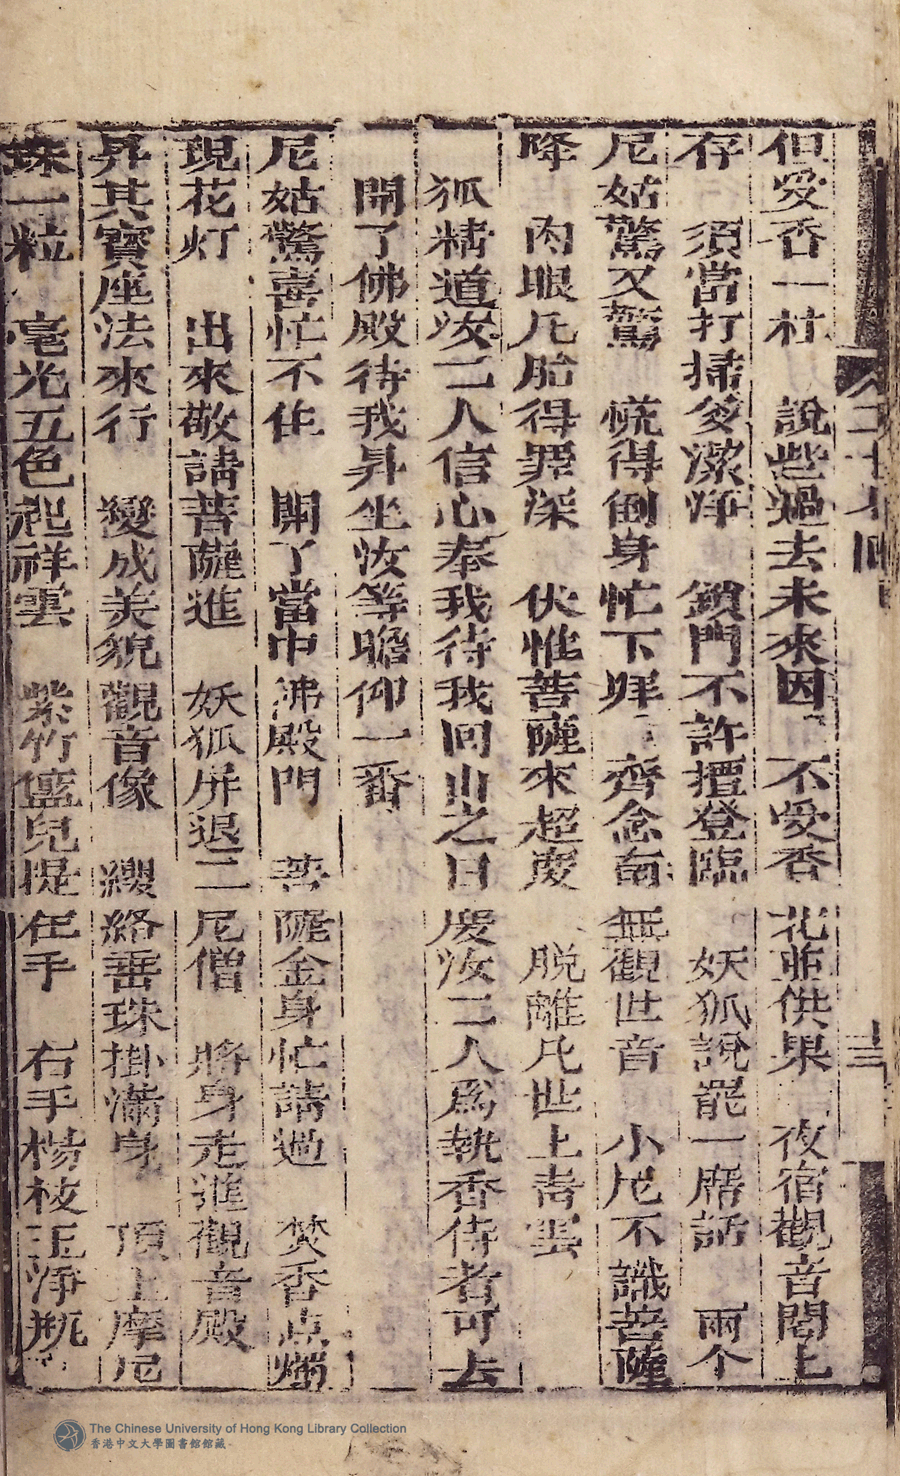 但受香一炷　說些過去未來因　不受香花並供果　夜宿觀音閣上
存　須當打掃多潔淨　鎖門不許擅登臨　妖狐說罷一席話　兩个
尼姑驚又驚　慌得倒身忙下拜　齊念南無觀世音　小尼不識菩薩
降　肉眼凡胎得罪深　伏惟菩薩來超度　脫離凡世上青雲
狐精道汝二人信心奉我待我回山之日度汝二人爲執香侍者可去
開了佛殿待我昇坐汝等瞻仰一番
尼姑驚喜忙不住　開了當中沸殿門　菩薩金身忙請過　焚香点燭
現花灯　出來敬請菩薩進　妖狐屏退二尼僧　將身走進觀音殿
昇其寶座法來行　變成美貌觀音像　纓絡垂珠掛滿身　頂上摩尼
珠一粒　毫光五色起祥雲　紫竹籃兒提在手　右手楊枝玉淨瓶
The Chinese University of Hong Kong Library Collection
香港中文大學圖書館館藏